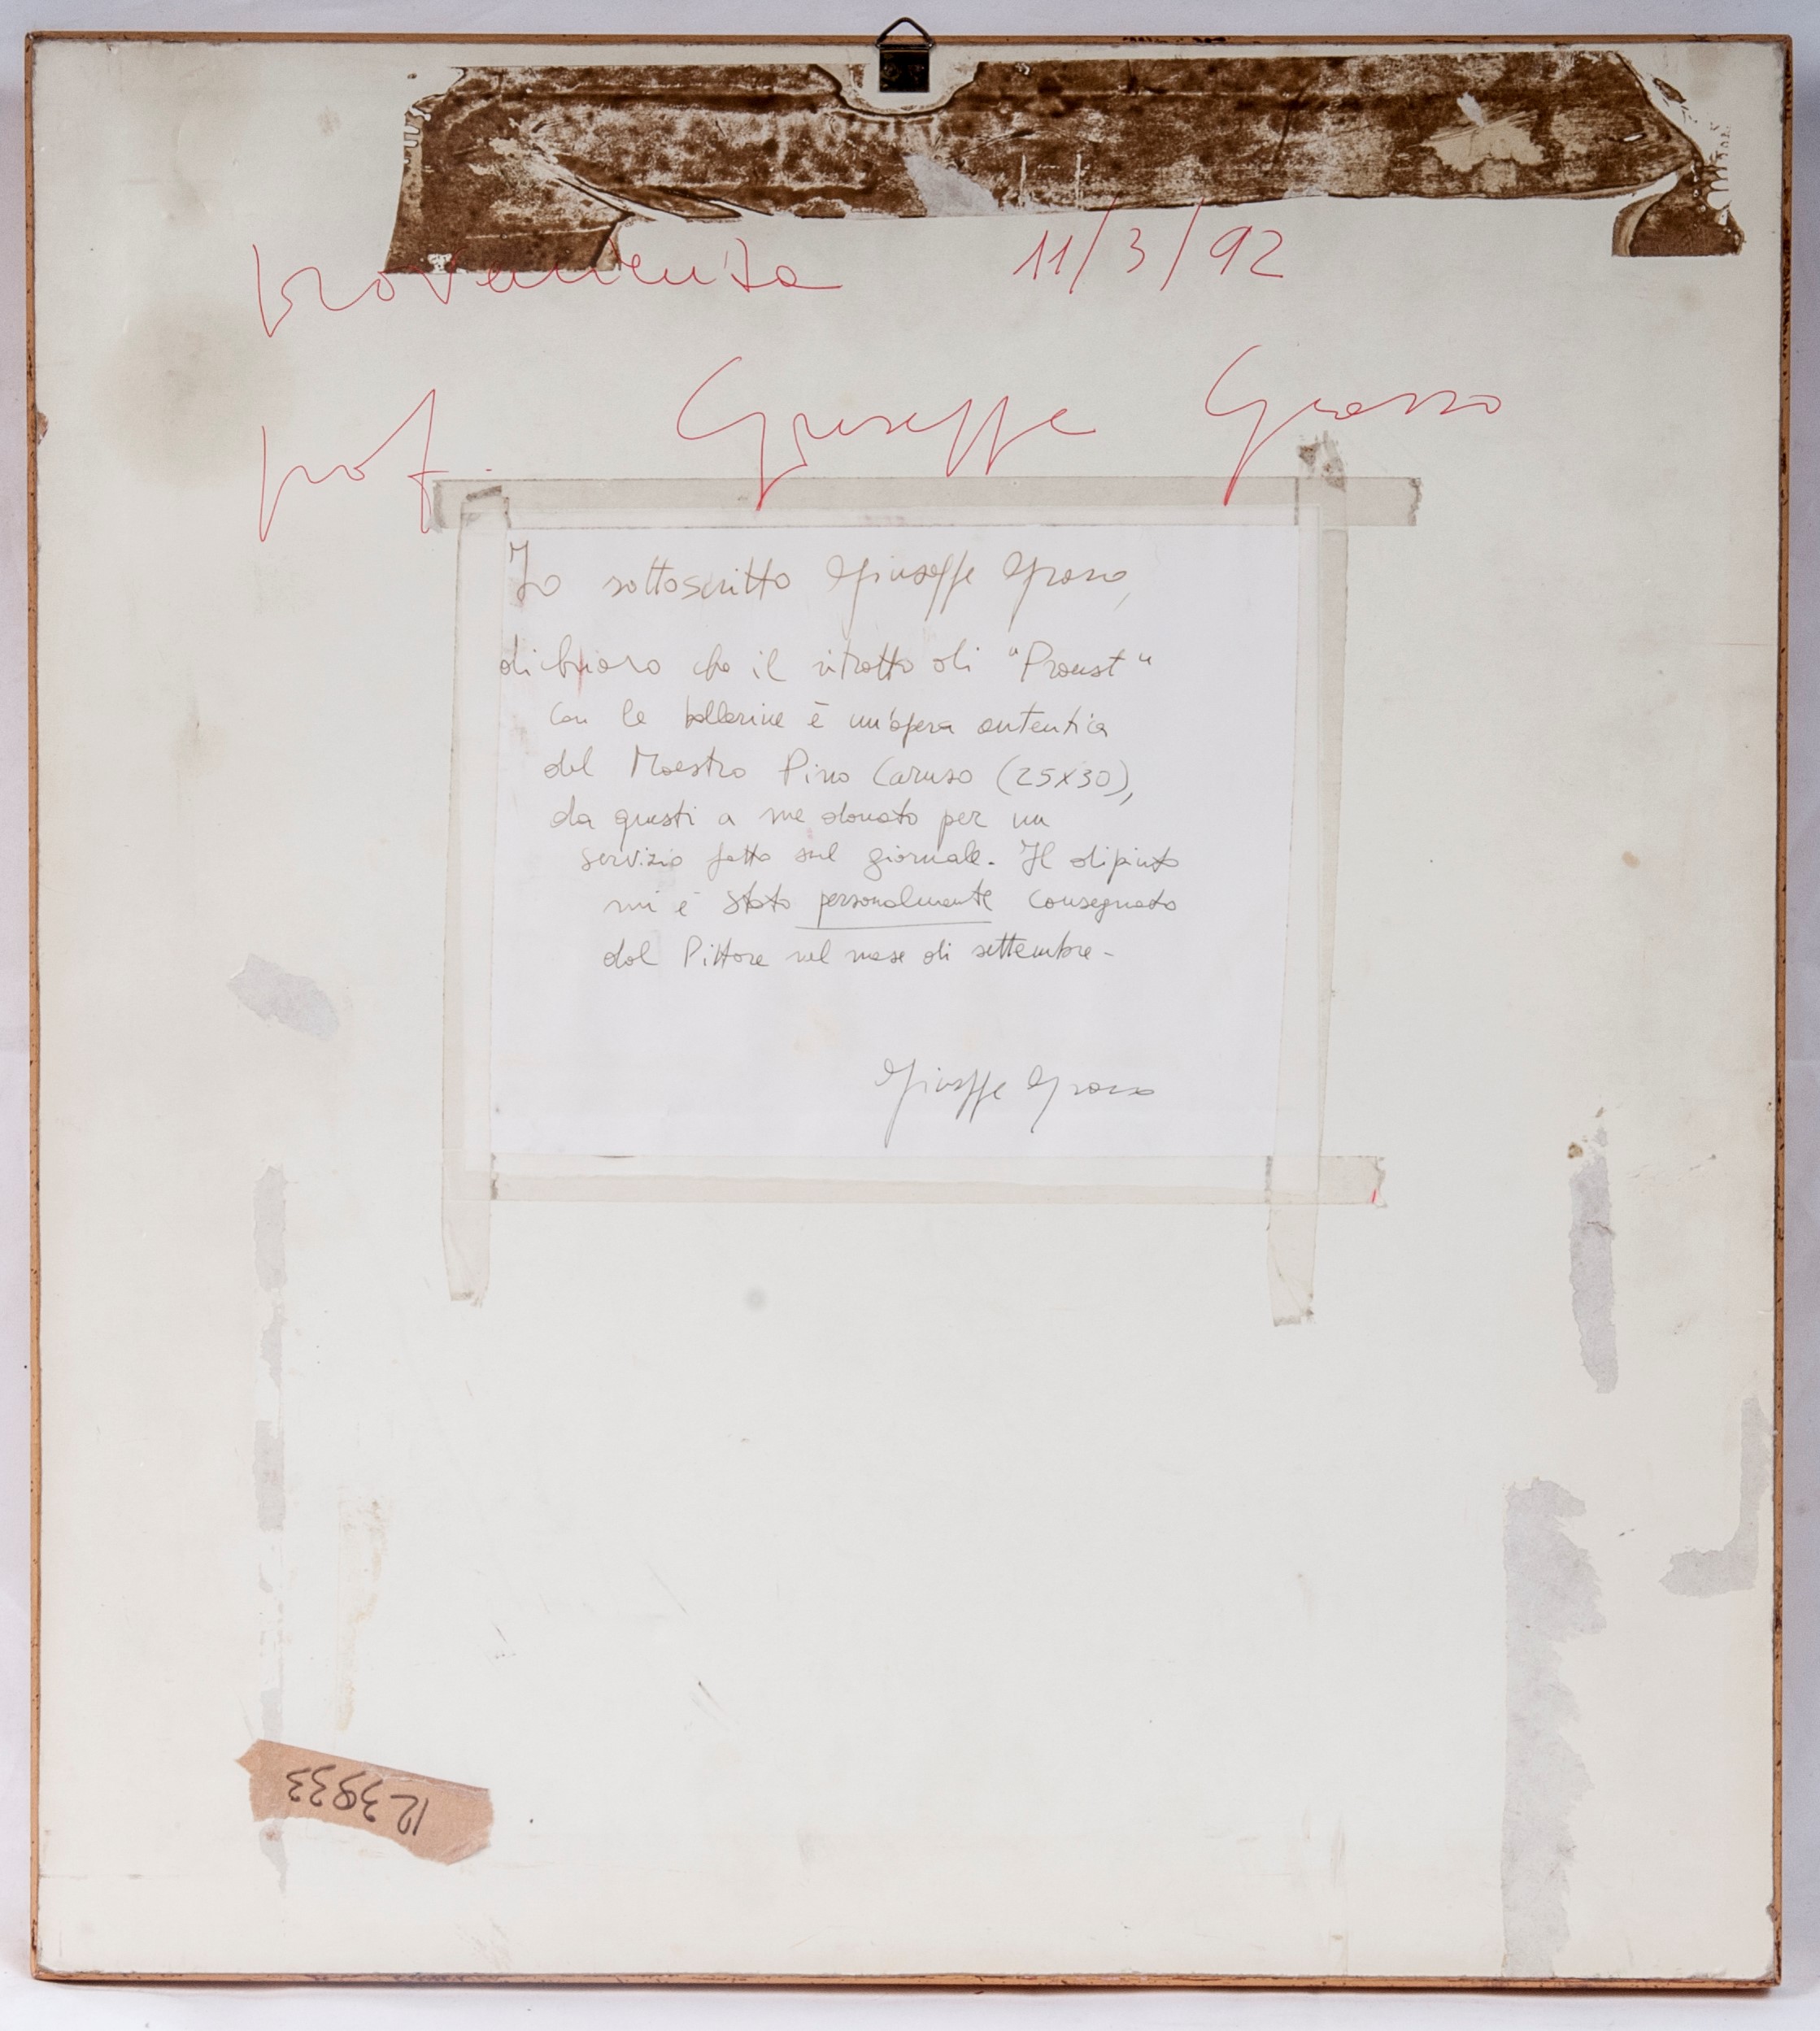 provenienza 11/3/92
prof. Giuseppe Grasso
Io sottoscritto Giuseppe Grasso,
dichiaro che il ritratto di "Proust"
con le ballerine è un'opera autentica
del Maestro Pino Caruso (25x30),
da questi a me donato per un
servizio fatto sul giornale. Il dipinto
mi è stato personalmente consegnato
dal Pittore nel mese di settembre-
Giuseppe Grasso
123933